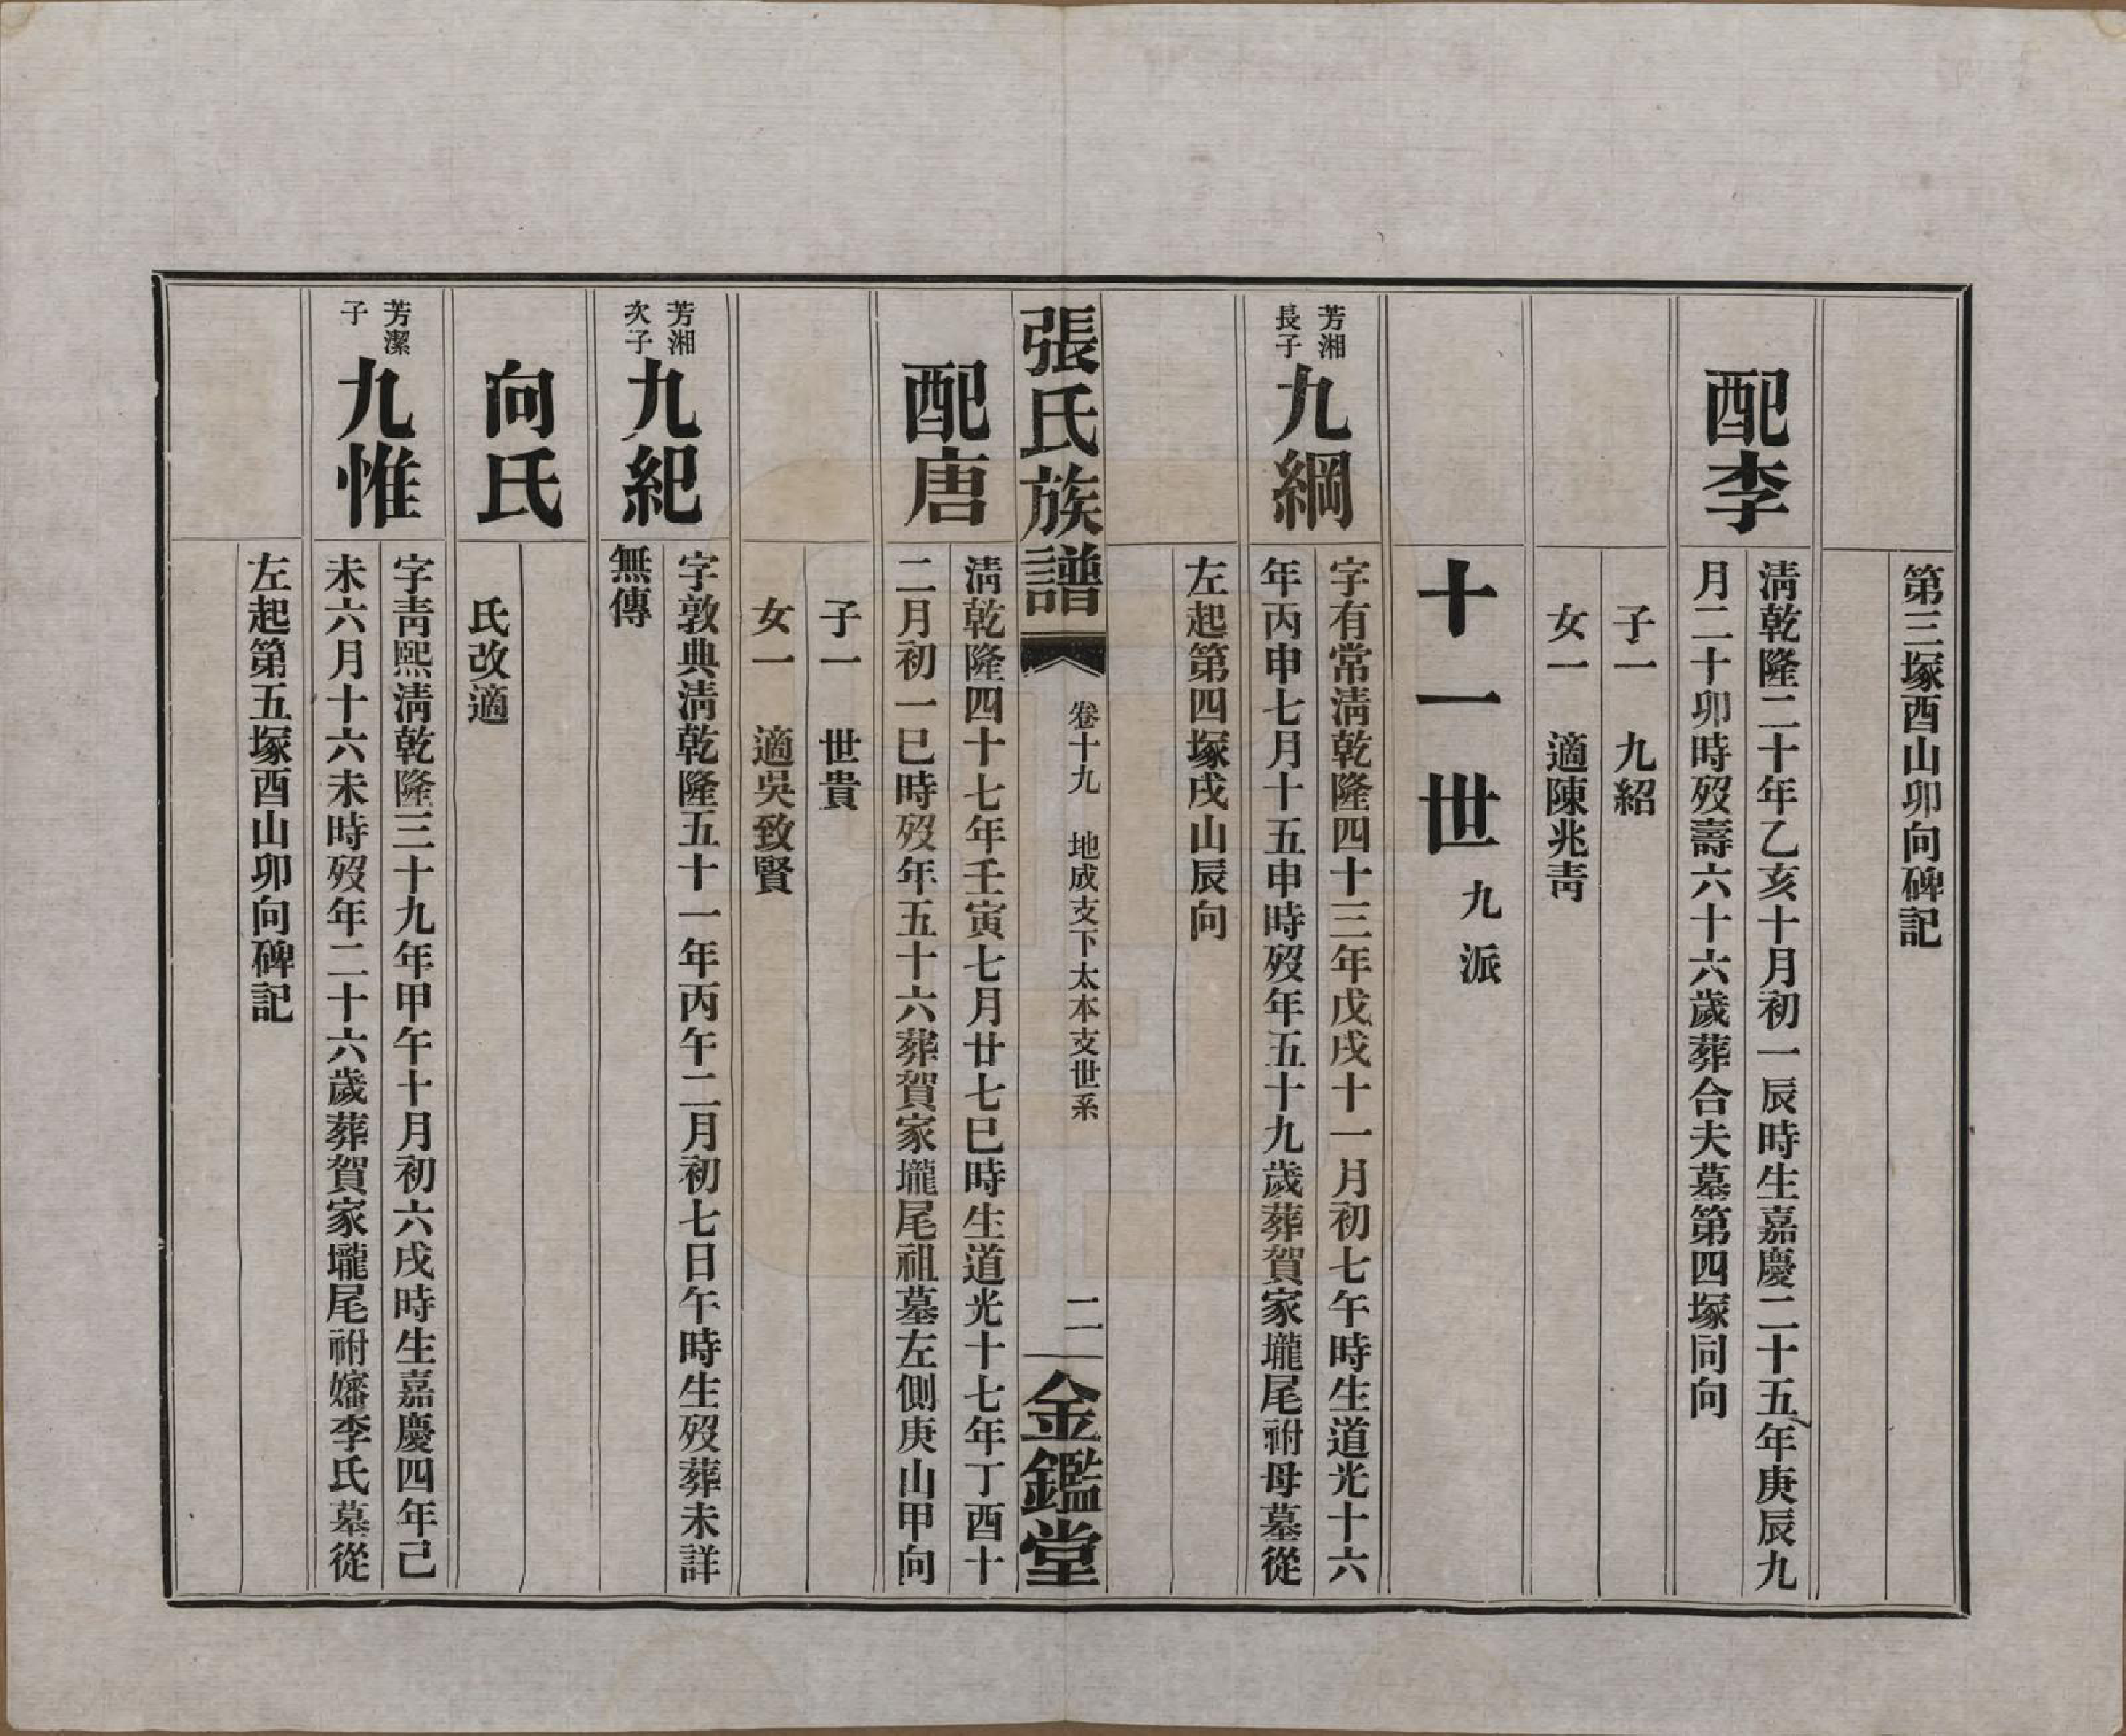 第三塚酉山卯向碑記
配李
淸乾隆二十年乙亥十月初一辰時生嘉慶二十五年庚辰九
月二十卯時歿壽六十六歲葬合夫墓第四塚同向
子一　九紹
女一　適陳兆靑
十一世九派
芳湘
長子
九綱
字有常淸乾隆四十三年戊戌十一月初七午時生道光十六
年丙申七月十五申時歿年五十九歲葬賀家壠尾祔母墓從
左起第四塚戌山辰向
張氏族譜
卷十九　地成支下太本支世系
二
金鑑堂
配唐
淸乾隆四十七年壬寅七月廿七巳時生道光十七年丁酉十
二月初一巳時歿年五十六葬賀家壠尾祖墓左側庚山甲向
子一　世貴
女一　適吳致賢
芳湘
次子
九紀
字敦典淸乾隆五十一年丙午二月初七日午時生歿葬未詳
無傳
向氏
氏改適
芳潔
子
九惟
字靑熙淸乾隆三十九年甲午十月初六戌時生嘉慶四年己
未六月十六未時歿年二十六歲葬賀家壠尾祔嬸李氏墓從
左起第五塚酉山卯向碑記